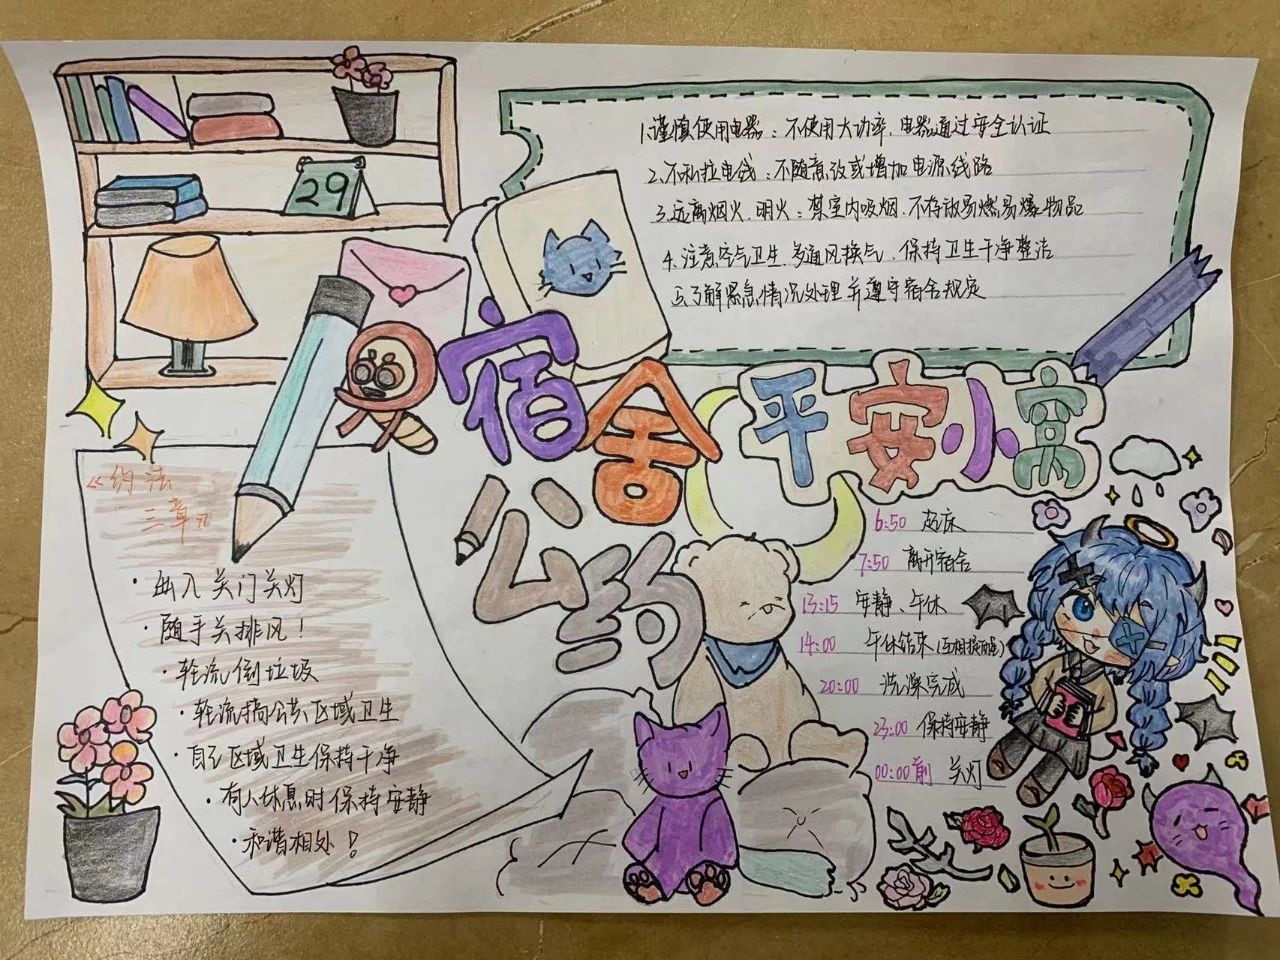 29
1.谨慎使用电器：不使用大功率,电器通过安全认证
2、不私拉电线：不随意改或增加电源线路
3.远离烟火、明火：禁室内吸烟、不存放易燃易爆物品
4、注意空气卫生、多通风换气、保持卫生干净整洁
5.了解紧急情况处理并遵守宿舍规定
宿舍
公约
平安小窝
《约法
三章》
·出入关门关灯
·随手关排风！
·轮流倒垃圾
·轮流搞公共区域卫生
·自己区域卫生保持干净
·有人休息时保持安静
·和谐相处！
6:50 起床
7:50 离开宿舍
13:15 安静、午休
14:00 午休结束(互相提醒)
20:00 洗澡完成
23:00 保持安静
00:00前 关灯